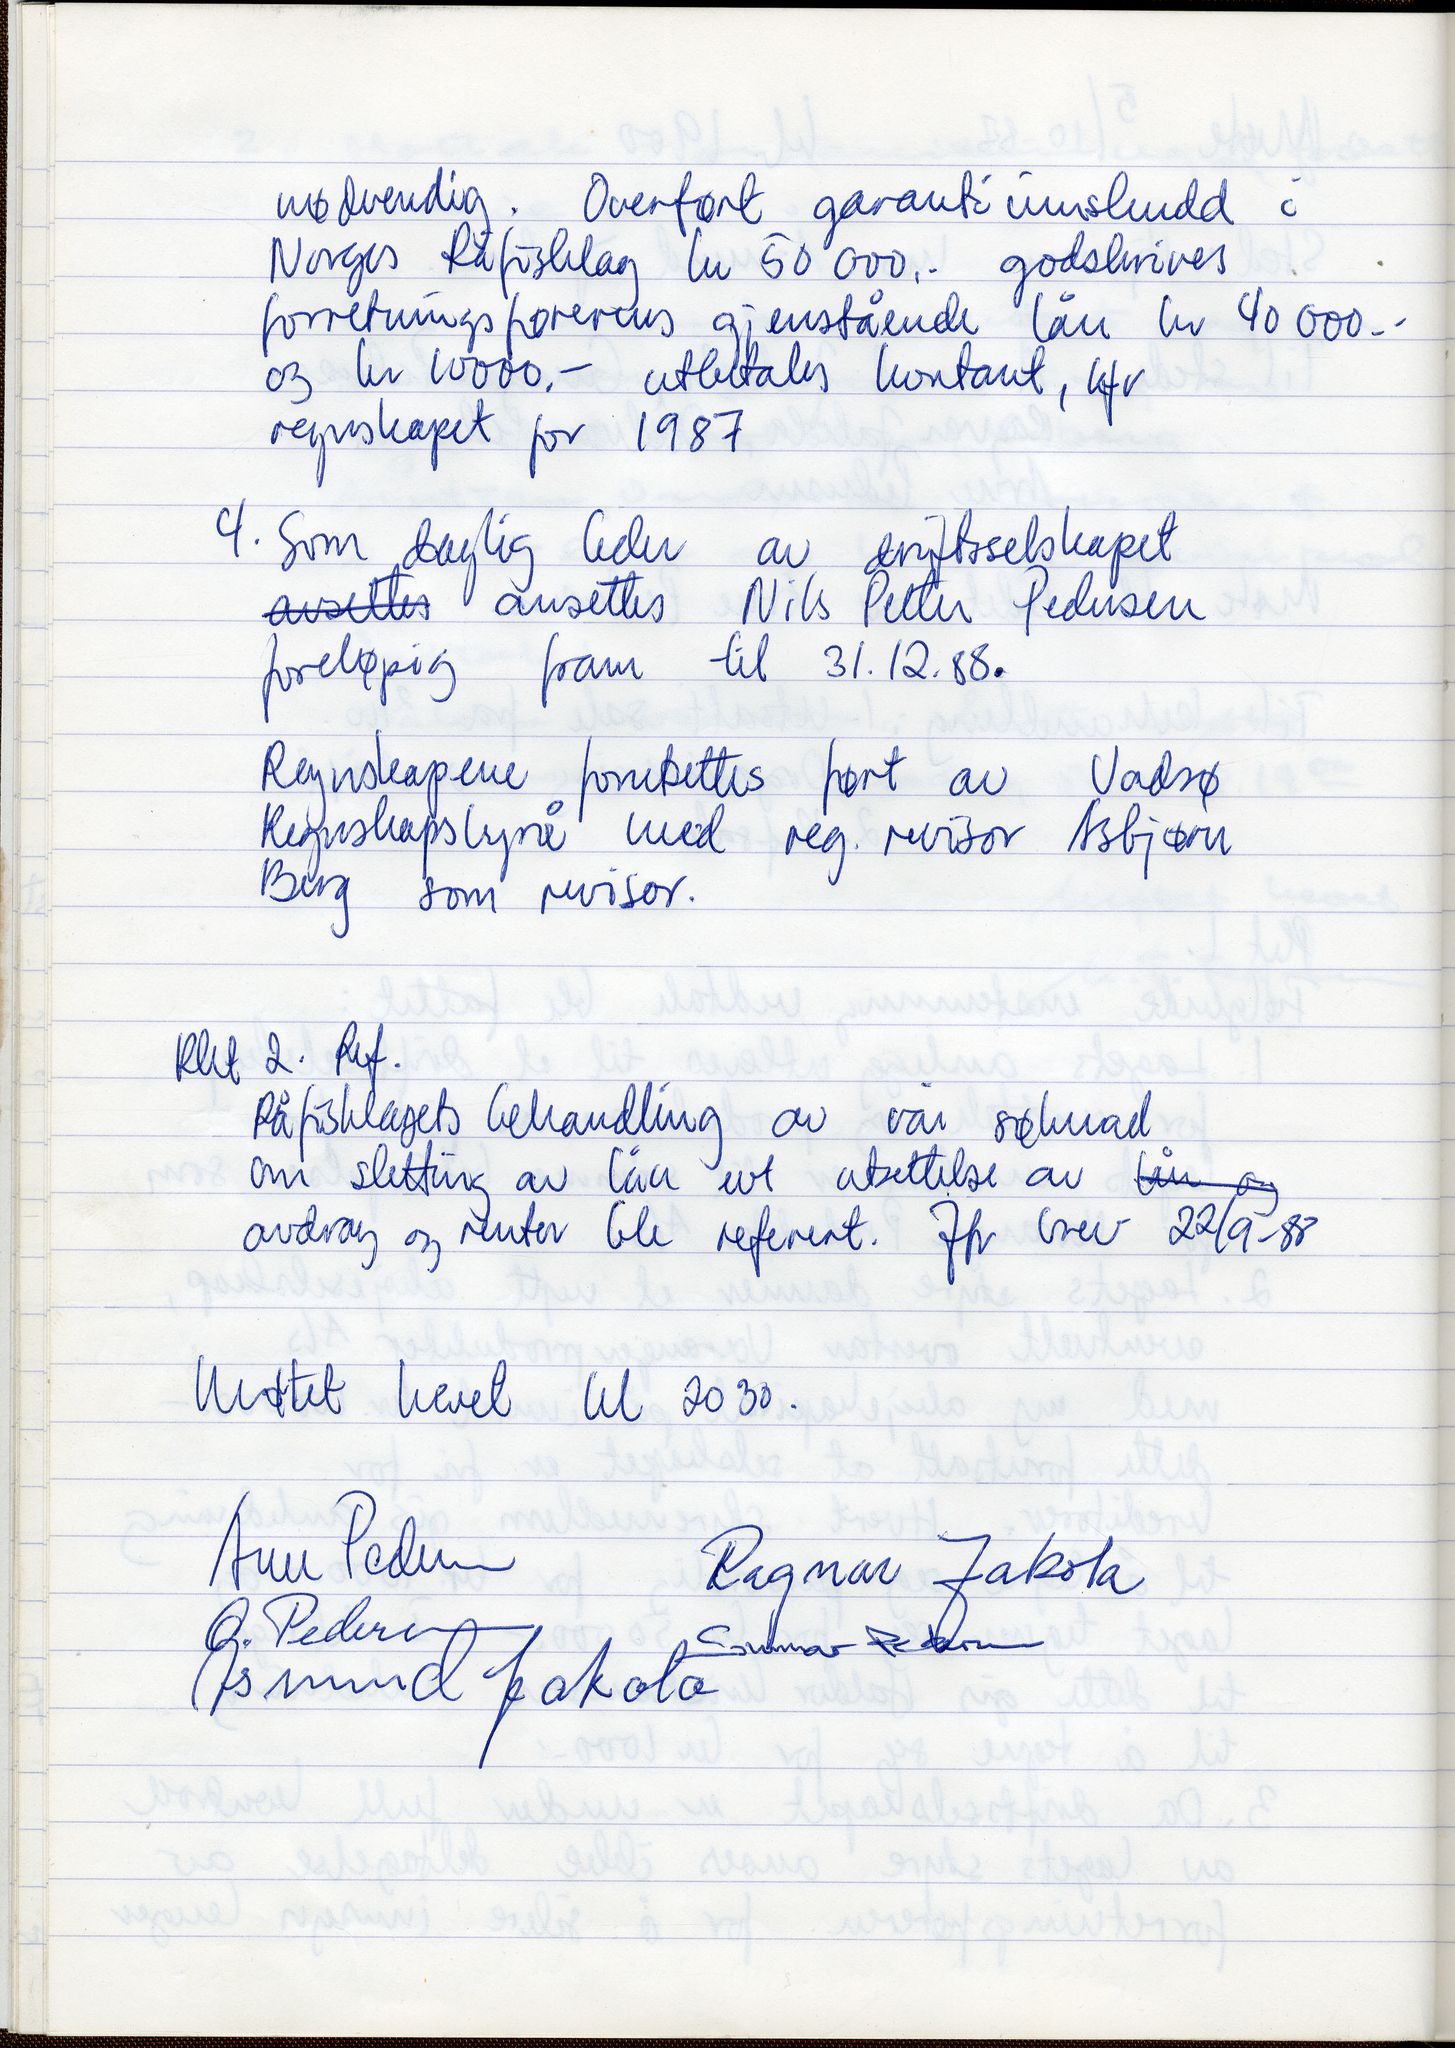 nødvendig. Overført garantiinnskudd i
Norges Råfisklag kr 50 000.- godskrives
forretningsførerens gjenstående lån kr 40 000.-
og kr 10000.- utbetales kontant, kfr
regnskapet for 1987
4. Som daglig leder av driftsselskapet
ansettes ansettes Nils Petter Pedersen
foreløpig fram til 31.12.88.
Regnskapene forutsettes ført av Vadsø
Regnskapsbyrå med reg. revisor Asbjørn
Berg som revisor.
Pkt 2. Ref.
Råfisklagets behandling av vår søknad
om sletting av lån evt utsettelse av lån og
avdrag og renter ble referert. Jfr brev 22/9-88
Møtet hevet kl 2030.
Arne Pedersen Ragnar Jakola
O. Pedersen Pedersen
Åsmund Jakola